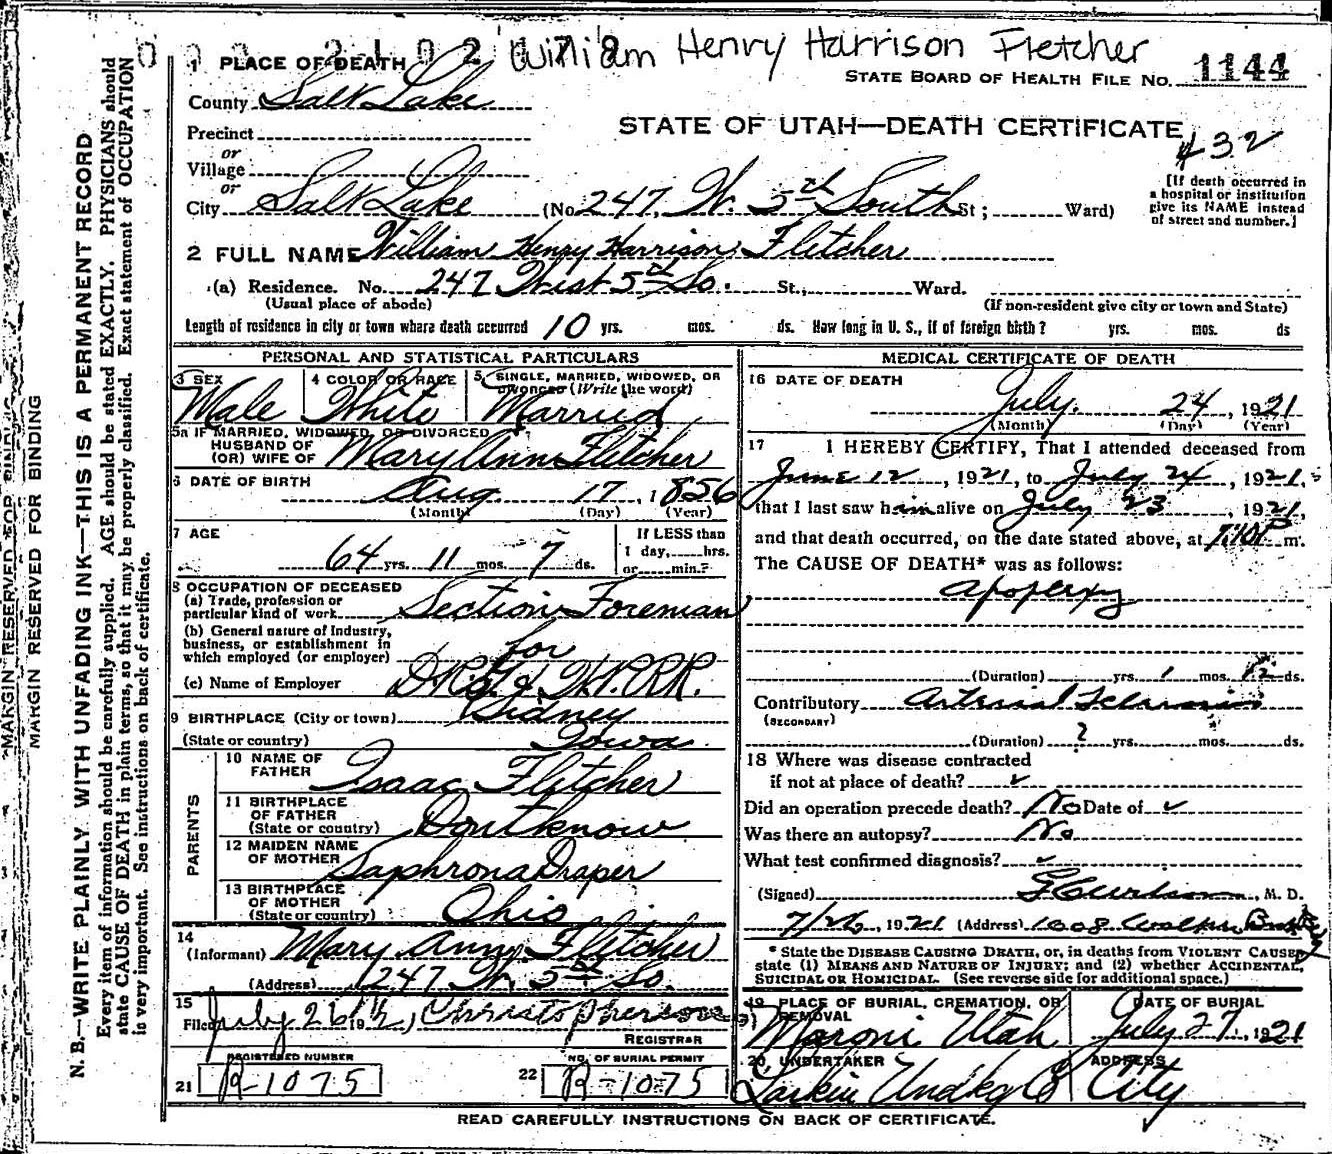 William Henry Harrison Fletcher
1 PLACE OF DEATH
STATE BOARD OF HEALTH FILE NO. 1144
County Salt Lake
STATE OF UTAH—DEATH CERTIFICATE
432
Precinct
or
Village
or
City Salt Lake (No. 247 W. 5th South St; Ward)
[If death occurred in
a hospital or institution
give its NAME instead
of street and number.]
2 FULL NAME William Henry Harrison Fletcher
(a) Residence. No. 247 West 5th So. St., Ward.
(Usual place of abode) (If non-resident give city or town and State)
Length of residence in city or town where death occurred 10 yrs. mos. ds. How long in U. S., if of foreign birth? yrs. mos. ds
PERSONAL AND STATISTICAL PARTICULARS
3 SEX Male
4 COLOR OR RACE White
5 SINGLE, MARRIED, WIDOWED, OR
DIVORCED (Write the word)
Married
5a IF MARRIED, WIDOWED, OR DIVORCED
HUSBAND OF
(OR) WIFE OF Mary Ann Fletcher
6 DATE OF BIRTH Aug 17, 1856
(Month) (Day) (Year)
7 AGE 64 yrs. 11 mos. 7 ds.
If LESS than
1 day, hrs.
or min.?
8 OCCUPATION OF DECEASED
(a) Trade, profession or
particular kind of work Section Foreman
(b) General nature of Industry,
business, or establishment in
which employed (or employer) for
(c) Name of Employer
9 BIRTHPLACE (City or town) Sidney
(State or country) Iowa
PARENTS
10 NAME OF
FATHER Isaac Fletcher
11 BIRTHPLACE
OF FATHER
(State or country) Dont know
12 MAIDEN NAME
OF MOTHER Saphrona Draper
13 BIRTHPLACE
OF MOTHER
(State or country) Ohio
14
(Informant) Mary Ann Fletcher
(Address) 247 W. 5th So.
15
Filed July 26 192 Christopherson
REGISTRAR
REGISTERED NUMBER
21 R-1075
NO. OF BURIAL PERMIT
22 R-1075
MEDICAL CERTIFICATE OF DEATH
16 DATE OF DEATH
July 24, 1921
(Month) (Day) (Year)
17 I HEREBY CERTIFY, That I attended deceased from
June 12, 1921, to July 24, 1921,
that I last saw him alive on July 23, 1921,
and that death occurred, on the date stated above, at P m.
The CAUSE OF DEATH* was as follows:
apoplexy
(Duration) yrs. 1 mos. 12 ds.
Contributory Arterial Sclerosis
(SECONDARY)
(Duration) ? yrs. mos. ds.
18 Where was disease contracted
if not at place of death? ✓
Did an operation precede death? No Date of ✓
Was there an autopsy? No
What test confirmed diagnosis? ✓
(Signed) M. D.
7/26, 1921 (Address) 1008 Walker Bank Bldg
* State the DISEASE CAUSING DEATH, or, in deaths from VIOLENT CAUSES,
state (1) MEANS AND NATURE OF INJURY; and (2) whether ACCIDENTAL,
SUICIDAL OR HOMICIDAL. (See reverse side for additional space.)
19 PLACE OF BURIAL, CREMATION, OR
REMOVAL
Moroni Utah
DATE OF BURIAL
July 27, 1921
20 UNDERTAKER
Larkin Undkg Co
ADDRESS
City
READ CAREFULLY INSTRUCTIONS ON BACK OF CERTIFICATE.
MARGIN RESERVED FOR BINDING
MARGIN RESERVED FOR BINDING
N. B.—WRITE PLAINLY WITH UNFADING INK—THIS IS A PERMANENT RECORD
Every item of information should be carefully supplied. AGE should be stated EXACTLY. PHYSICIANS should
state CAUSE OF DEATH in plain terms, so that it may be properly classified. Exact statement of OCCUPATION
is very important. See instructions on back of certificate.